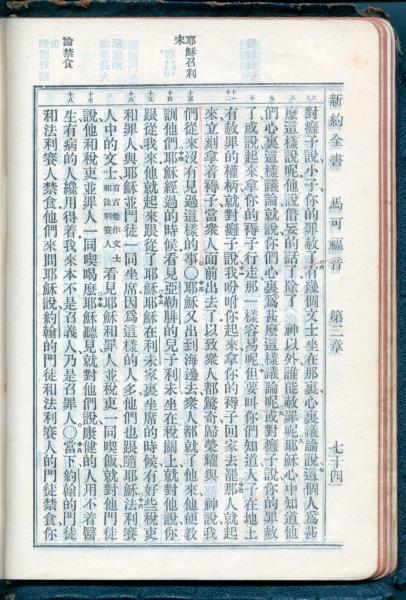 新約全書　馬可福音　第二章　七十四
對癱子說小子你的罪赦了有幾個文士坐在那裏心裏議論說這個人爲甚
麼這樣說呢他說僭妄的話了除了　神以外誰能赦罪呢耶穌心中知道他
們心裏這樣議論就說你們心裏爲甚麼這樣議論呢或對癱子說你的罪赦
了或說起來拿你的褥子行走那一樣容易呢但要叫你們知道人子在地上
有赦罪的權柄就對癱子說我吩咐你起來拿你的褥子回家去罷那人就起
來立刻拿着褥子當衆人面前出去了以致衆人都驚奇歸榮耀與　神說我
們從來沒有見過這樣的事〇耶穌又出到海邊去衆人都就了他來他便教
訓他們耶穌經過的時候看見亞勒腓的兒子利未坐在稅關上就對他說你
跟從我來他就起來跟從了耶穌耶穌在利未家裏坐席的時候有好些稅吏
和罪人與耶穌並門徒一同坐席因爲這樣的人多他們也跟隨耶穌法利賽
人中的文士有古卷作文士和法利賽人看見耶穌和罪人並稅吏一同喫飯就對他門徒
說他和稅吏並罪人一同喫喝麼耶穌聽見就對他們說康健的人用不着醫
生有病的人纔用得着我來本不是召義人乃是召罪人〇當下約翰的門徒
和法利賽人禁食他們來問耶穌說約翰的門徒和法利賽人的門徒禁食你
耶穌召利
未
論禁食